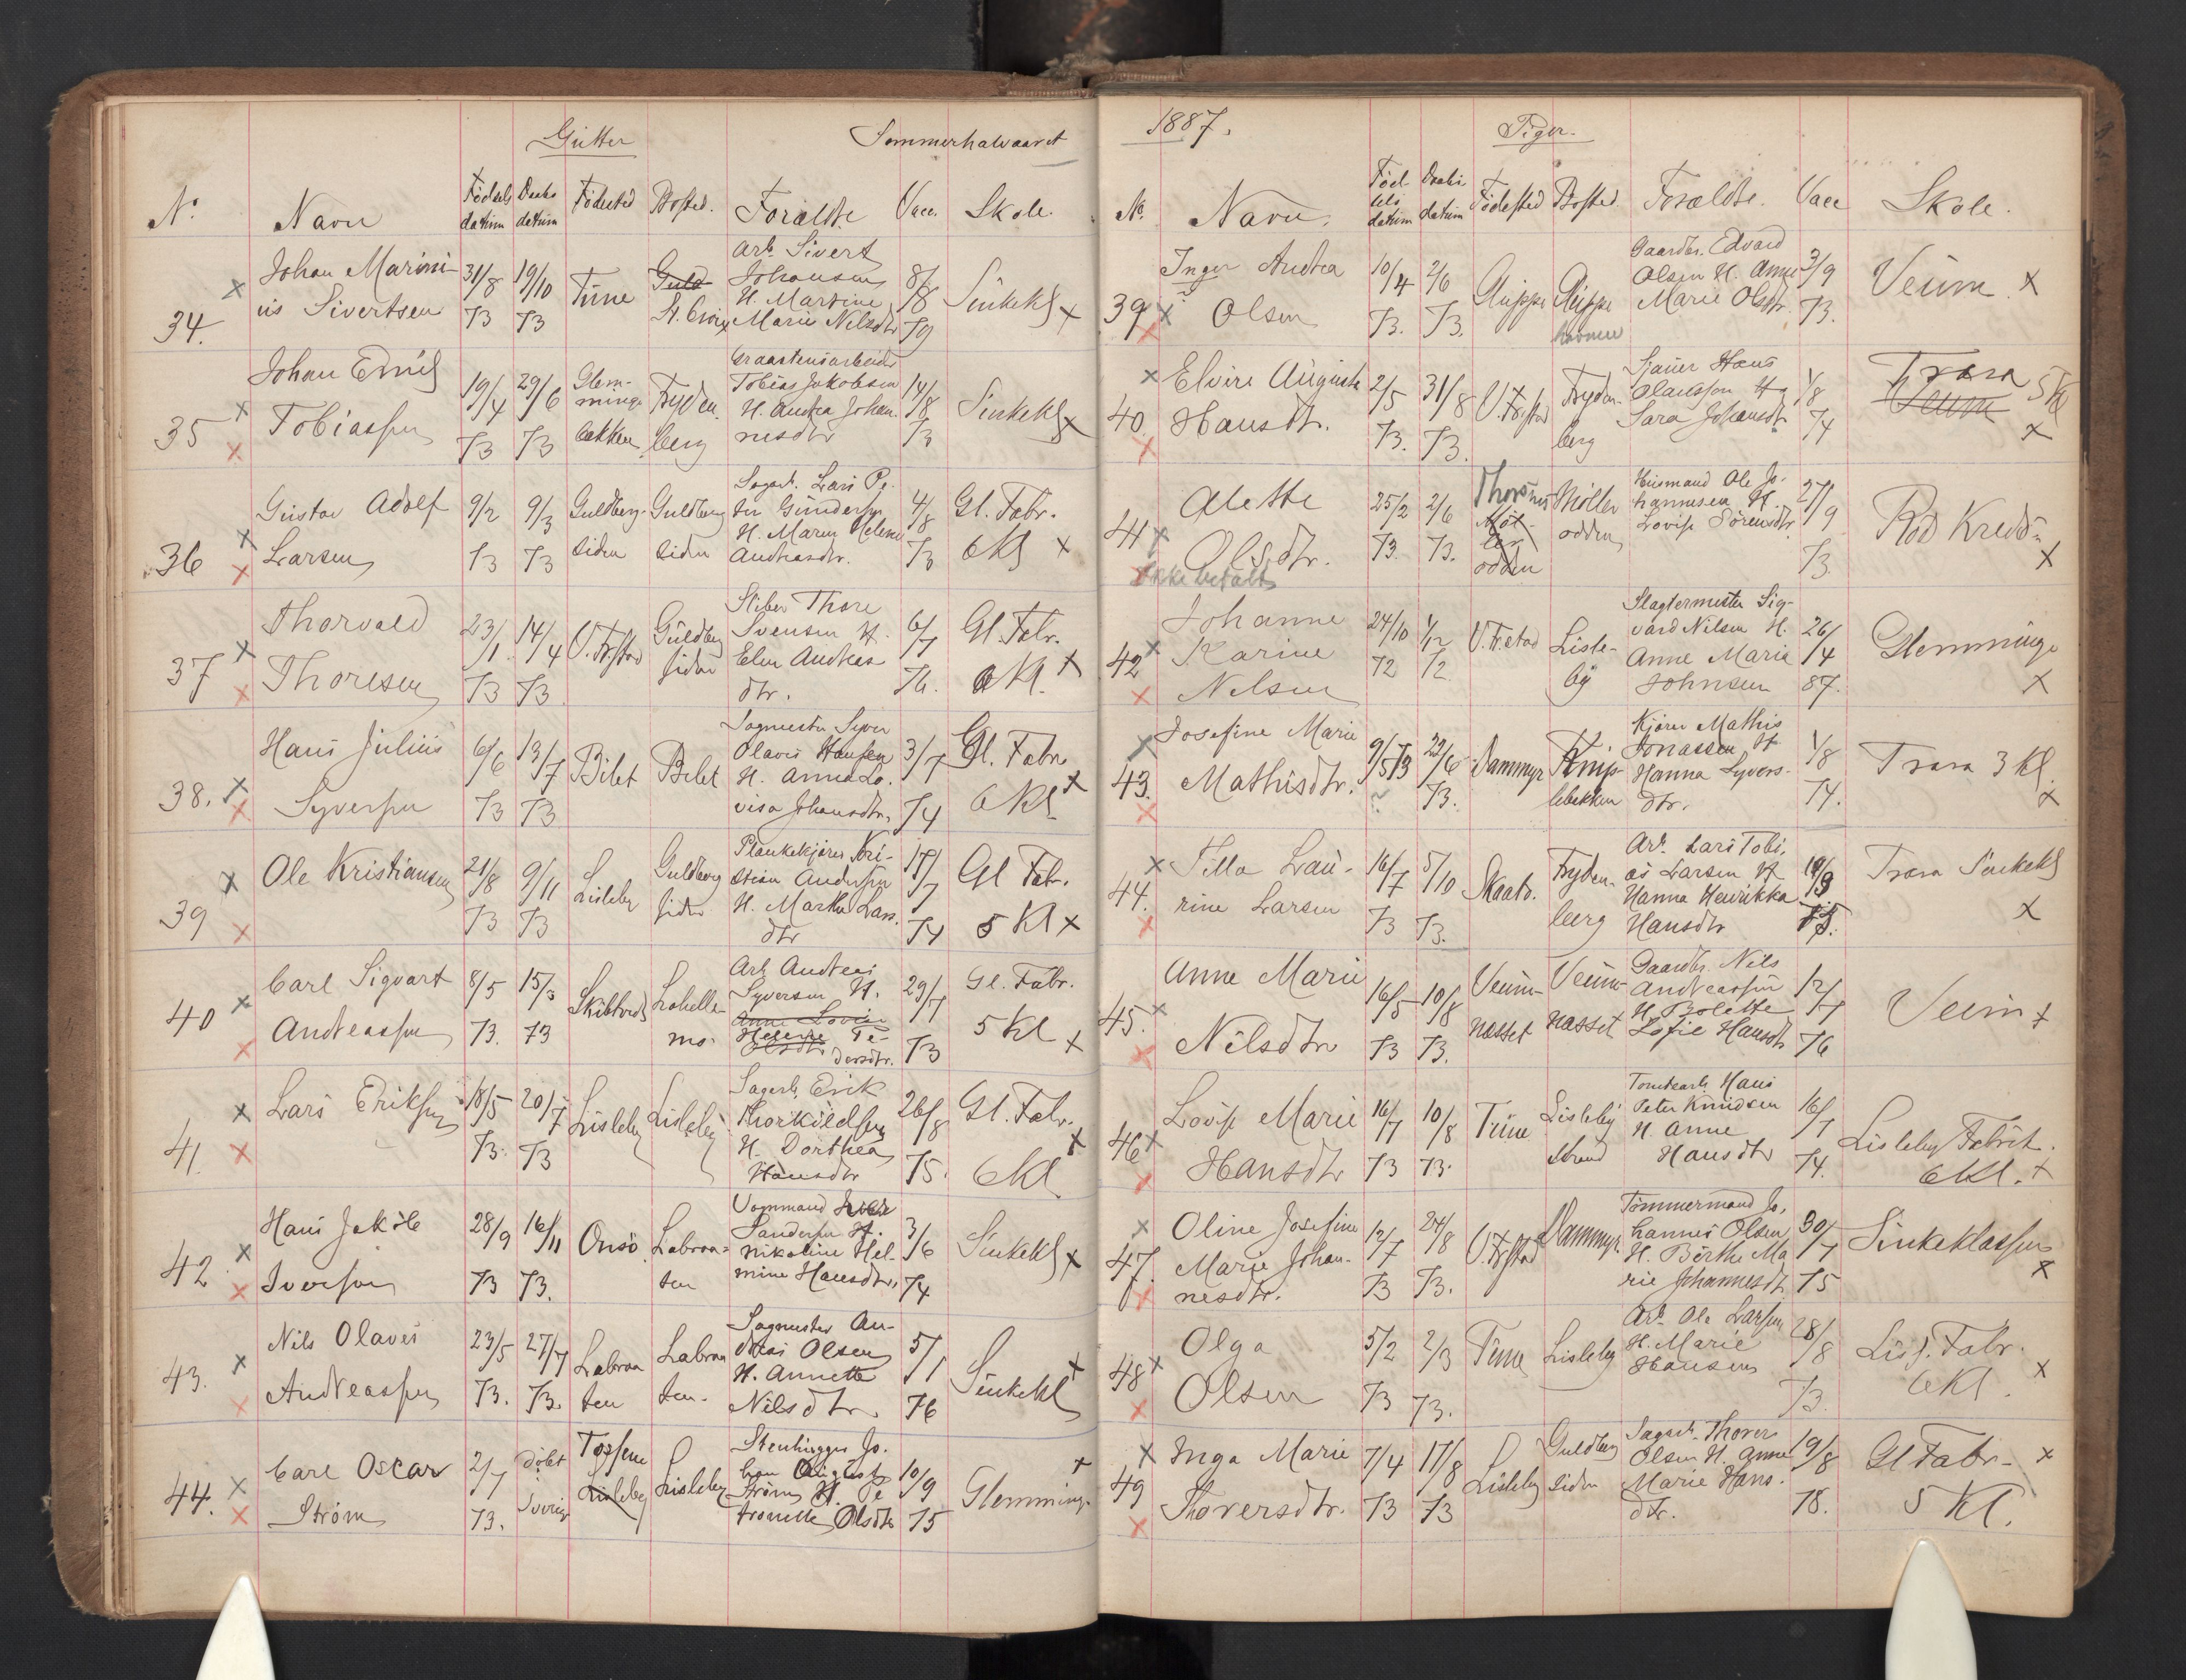 Gutter
Sommerhalvaaret
No
Navn
Fødselsdatum
Daabsdatum
Fødested
Bosted.
Forældre
Vacc.
Skole.
34.
Johan Marini-
us Sivertsen
31/8 73
19/10 73
Tune
Guld
St. Croix
Arb. Sivert
Johansen
H. Martine
Marie Nilsdtr
8/8 79
Sinkekl x
35
Johan Emil
Tobiassen
19/4 73
29/6 73
Glem-
minge
bækken
Fryden
berg
Graastensarbeider
Tobias Jakobsen
H. Andrea Johan
nesdtr
14/8 73
Sinkekl x
36
Gustav Adolf
Larsen
9/2 73
9/3 73
Guldberg-
siden
Guldberg
siden
Sagarb. Lars Pe-
ter Gundersen
H. Maren Helene
Andreasdtr.
4/8 73
Gl. Fabr.
6 Kl x
37
Thorvald
Thoresen
23/1 73
14/4 73
V. Fr.stad
Guldberg
siden
Sliber Thore
Svensen H.
Elen Andreas
dtr.
6/7 76.
Gl. Fabr.
6 Kl. x
38.
Hans Julius
Syversen
6/6 73
13/7 73
Bilet
Bilet
Sagmester Syver
Olaves Hansen
H. Anna Lo-
visa Johansdtr,
3/7 74
Gl. Fabr.
6 Kl x
39
Ole Kristiansen
21/8 73
9/11 73
Lisleby
Guldberg
siden
Plankekjører Kri-
stian Andersen
H. Marthe Lars.
dtr
17/7 74
Gl Fabr.
5 Kl x
40
Carl Sigvart
Andreassen
8/5 73.
15/3 73
Skibtvedt
Labella-
mo.
Arb Andreas
Syversen H.
Anne Lovise
Helene Pe-
Olsdtr dersdtr.
29/7 73
Gl. Fabr.
5 Kl x
41.
Lars Eriksen
18/5 73.
20/7 73
Lisleby
Lisleby
Sagarb. Erik
Thorkildsen
H. Dorthea
Hansdtr
26/8 75.
Gl. Fabr.
6 Kl x
42
Hans Jakob
Iversen
28/9 73
16/11 73.
Onsø
Labraa-
ten
Vommand Iver
Sandersen H.
Nikoline Hel-
mine Hansdtr,
3/6 74
Sinkekl x
43.
Nils Olaves
Andreassen
23/5 73.
27/7 73.
Labraa
ten
Labraa
ten.
Sagmester An-
dreas Olsen
H. Annette
Nilsdtr.
5/1 76
Sinkekl x
44.
Carl Oscar
Strøm
2/7 73.
Døbt
i
Sverige
Torsnes
Lisleby
Lisleby
Stenhugger Jo-
han August
Strøm H. Pe
tronelle Olsdtr
10/9 75
Glemminge x
1887.
Piger.
No.
Navn.
Fødselsdatum
Daabsdatum
Fødested
Bosted.
Forældre.
Vacc
Skole.
39
Inger Andrea
Olsen
10/4 73.
2/6 73.
Gluppe
Gluppe
havnen
Gaardbr. Edvard
Olsen H. Anne
Marie Olsdtr.
3/9 73.
Veum. x
40.
Elvire Auguste
Hansdtr.
2/5 73.
31/8 73.
V. Fr.stad
Fryden-
berg
Stauer Hans
Olaussen H
Sara Johansdtr
1/8 74
Trara 5 Kl
Veum x
41
Alette
Olsdtr.
Ikke betalt
25/2 73.
2/6 73.
Thorsnes
Møl-
ler
odden
Møller
odden
Husmand Ole Jo-
hannesen H.
Lovise Sørensdtr
27/9 73
Rød Kreds x
42
Johanne
Karine
Nilsen
24/10 72
1/12 72.
V. Fr.stad
Lisle-
by
Slagtermester Sig-
vard Nilsen H.
Anne Marie
Johnsen
26/4 87.
Glemminge x
43.
Josefine Marie
Mathisdtr.
9/5 73
22/6 73.
Dammyr
Knip-
lebækken
Kjører Mathis
Jonassen H
Hanna Syvers-
dtr.
1/8 74.
Trara 3 Kl. x
44.
Tilla Lau-
rine Larsen
16/7 73
5/10 73.
Skaatø.
Fryden-
berg
Arb. Lars Tobi-
as Larsen H
Hanna Henrikka
Hansdtr
Trara Sinkekl x
45.
Anne Marie
Nilsdtr
16/5 73
10/8 73.
Veum-
næsset
Veum-
næsset
Gaardbr. Nils
Andreassen
H. Bolette
Sofie Hansdtr
12/7 76
Veum x
46
Lovise Marie
Hansdtr
16/7 73
10/8 73.
Tune
Lisleby
strand
Tomtearb. Hans
Peter Knudsen
H. Anne
Hansdtr
16/7 74.
Lisleby Fabrik.
6 Kl. x
47.
Oline Josefine
Marie Johan-
nesdtr.
12/7 73
24/8 73.
V. Fr.stad
Dammyr.
Tømmermand Jo-
hannes Olsen
H. Birthe Ma
rie Johannesdtr
30/7 75
Sinkeklassen x
48
Olga
Olsen
5/2 73
2/3 73.
Tune
Lisleby
Arb. Ole Larsen
H. Marie
Hansen
28/8 73.
Lisl. Fabr.
6 Kl. x
49
Inga Marie
Thoversdtr.
7/4 73
17/8 73
Lisleby
Guldberg
siden
Sagarb. Thover
Olsen H. Anne
Marie Hans-
dtr.
19/8 78.
Gl Fabr- x
5 Kl.